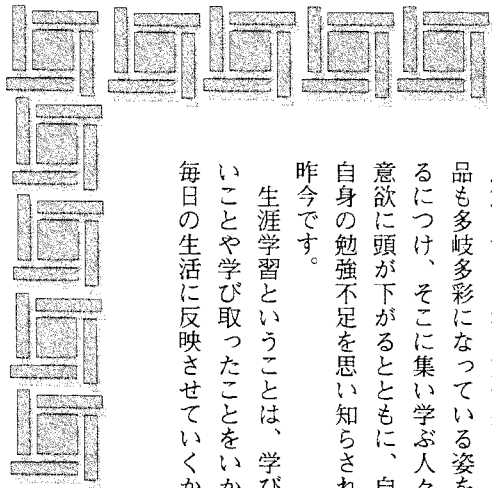 品も多岐多彩になっている姿を
るにつけ、そこに集い学ぶ人々
意欲に頭が下がるとともに、自
自身の勉強不足を思い知らされ
昨今です。
生涯学習ということは、学び
いことや学び取ったことをいか
毎日の生活に反映させていくか